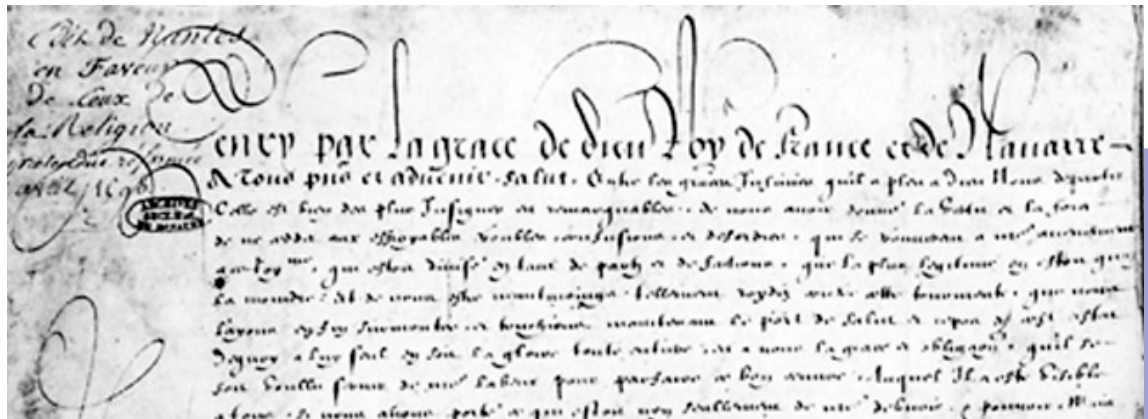 Edit de Nantes
en Faveur
De Ceux de
la Religion
pretendue reformee
avril 1598
ARCHIVES
enry par la grace de dieu Roy de France et de Nauarre
A tous pns et aduenir, Salut. Entre les graces Infinies quil a pleu a dieu Nous departir
Celle est bien des plus Insignes et remarquables, de nous auoir donné la vertu et la force
de ne ceder aux effroyables troubles, confusions, et desordres, qui se trouuerent a nre aduenement
a ce Roy.me, qui estoit diuisé en tant de partz et de factions, que la plus legitime en estoit quasi
la moindre. Et de nous estre neantmoings tellement roydiz contre cette tourmente, que nous
layons en fin surmontee, et touchions maintenant le port de salut et repos de cest estat
Dequoy a luy seul en soit la gloire toute entiere, et a nous la grace et obligaon quil se
soit voullu seruir de nre labeur pour parfaire ce bon oeuure. Auquel Il a esté visible
a tous, si nous auons porté ce qui estoit non seullement de nre debuoir, pouuoir,